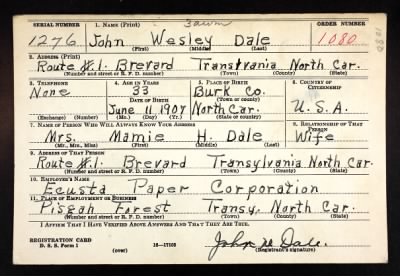 SERIAL NUMBER 1. NAME (Print) ORDER NUMBER
1276 John Wesley Dale 1080
(First) (Middle) (Last)
2. ADDRESS (Print)
Route #1. Brevard Transylvania North Car.
(Number and street or R. F. D. number) (Town) (County) (State)
3. TELEPHONE 4. AGE IN YEARS 5. PLACE OF BIRTH 6. COUNTRY OF CITIZENSHIP
None 33 Burk Co.
DATE OF BIRTH (Town or county)
June 11 1907 North Car. U.S.A.
(Exchange) (Number) (Mo.) (Day) (Yr.) (State or country)
7. NAME OF PERSON WHO WILL ALWAYS KNOW YOUR ADDRESS 8. RELATIONSHIP OF THAT PERSON
Mrs. Mamie H. Dale Wife
(Mr., Mrs., Miss) (First) (Middle) (Last)
9. ADDRESS OF THAT PERSON
Route #1. Brevard Transylvania North Car.
(Number and street or R. F. D. number) (Town) (County) (State)
10. EMPLOYER'S NAME
Ecusta Paper Corporation
11. PLACE OF EMPLOYMENT OR BUSINESS
Pisgah Forest Transy. North Car.
(Number and street or R. F. D. number) (Town) (County) (State)
I AFFIRM THAT I HAVE VERIFIED ABOVE ANSWERS AND THAT THEY ARE TRUE.
REGISTRATION CARD
D. S. S. Form 1 (over) 16—17105 John W Dale.
(Registrant's signature)